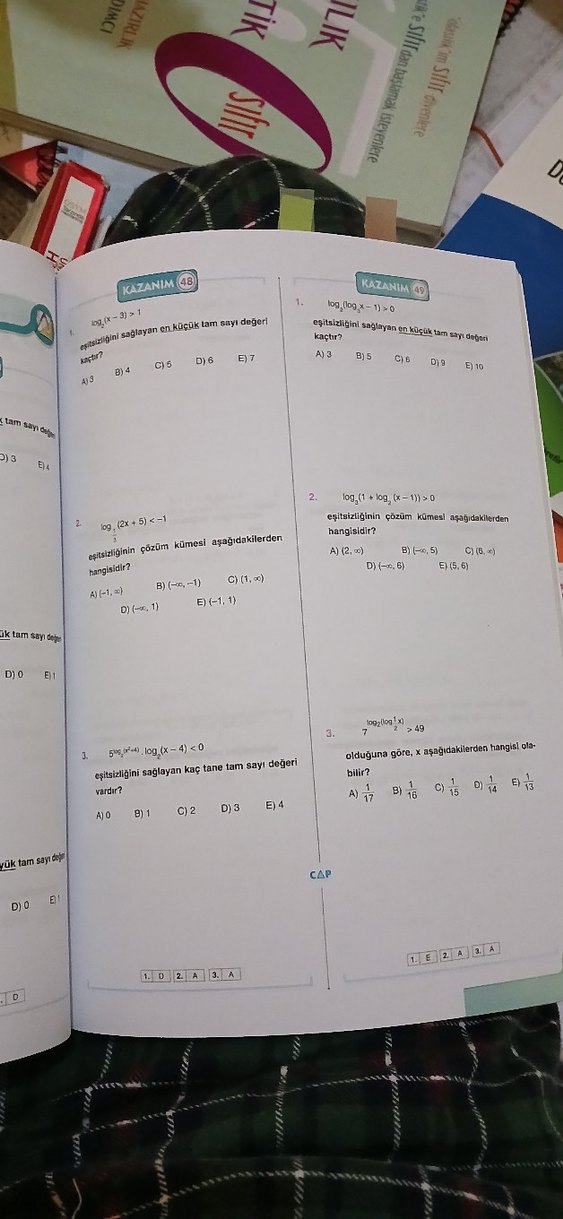 HAZIRLIK
YARDIMCI
TİK
ILIK
Sıfır
0
tik'e Sıfır'dan başlamak isteyenlere
Sıfır diyenlere
k tam sayı değer
D) 3 E) 4
ük tam sayı değer
D) 0 E) 1
yük tam sayı değer
D) 0
D
KAZANIM 48
1. log₂(x – 3) > 1
eşitsizliğini sağlayan en küçük tam sayı değeri
kaçtır?
A) 3 B) 4 C) 5 D) 6 E) 7
2. log_{1/3} (2x + 5) < –1
eşitsizliğinin çözüm kümesi aşağıdakilerden
hangisidir?
A) (–1, ∞) B) (–∞, –1) C) (1, ∞)
D) (–∞, 1) E) (–1, 1)
3. 5^{log₂(x²+4)} . log₂(x – 4) < 0
eşitsizliğini sağlayan kaç tane tam sayı değeri
vardır?
A) 0 B) 1 C) 2 D) 3 E) 4
1. D 2. A 3. A
KAZANIM 49
1. log₂(log₃x – 1) > 0
eşitsizliğini sağlayan en küçük tam sayı değeri
kaçtır?
A) 3 B) 5 C) 6 D) 9 E) 10
2. log₃(1 + log₂ (x – 1)) > 0
eşitsizliğinin çözüm kümesi aşağıdakilerden
hangisidir?
A) (2, ∞) B) (–∞, 5) C) (6, ∞)
D) (–∞, 6) E) (5, 6)
3. 7^{log₂(log_{1/2}x)} > 49
olduğuna göre, x aşağıdakilerden hangisi ola-
bilir?
A) 1/17 B) 1/16 C) 1/15 D) 1/14 E) 1/13
CAP
1. E 2. A 3. A